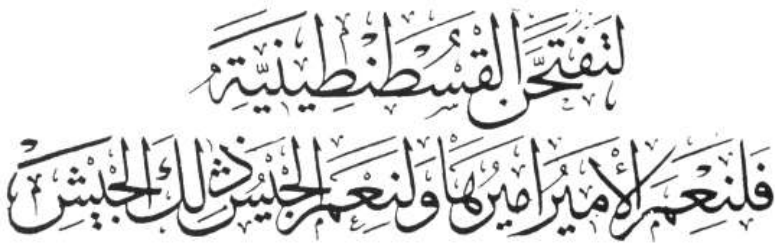 لتفتحن القسطنطينية
فلنعم الأمير أميرها ولنعم الجيش ذلك الجيش